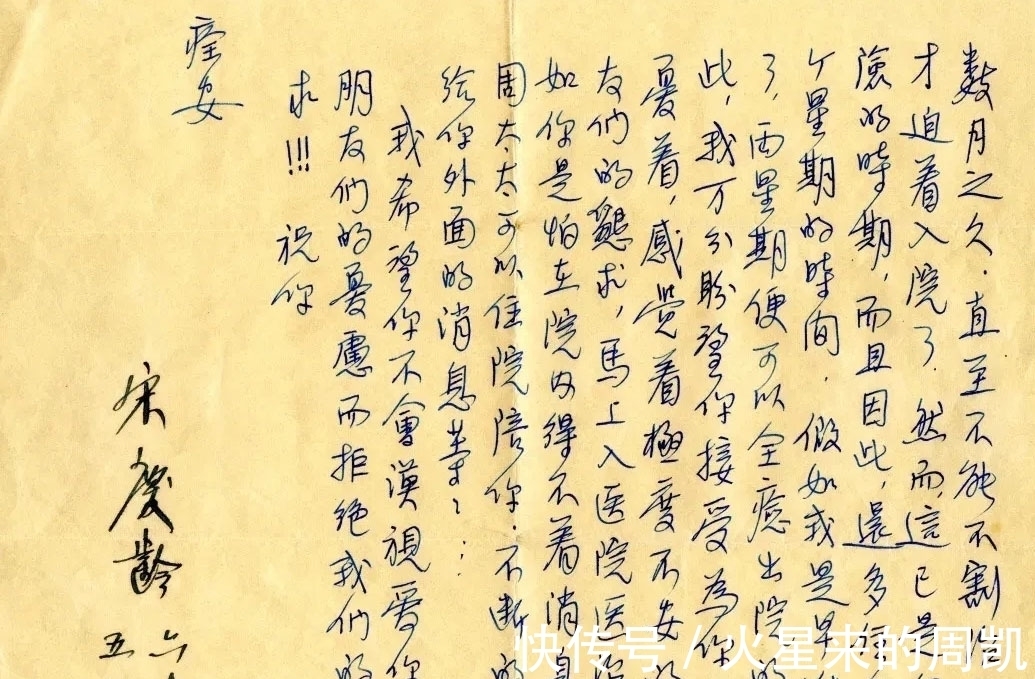 数月之久.直至不能不割治
才迫着入院了.然而,這已是
險的時期,而且因此,還多住
个星期的時间.假如我是早
了,两星期便可以全癒出院的
此,我万分盼望你接受為你
憂着,感觉着極度不安的
友们的懇求,馬上入医院医治
如你是怕在院内得不着消息
周太太可以住院陪你.不断的
给你外面的消息等:::
我希望你不會漠視爱你
朋友们的憂慮而拒绝我们的
求!!! 祝你
痊安
宋慶齡
五 六
快传号/火星来的周凯